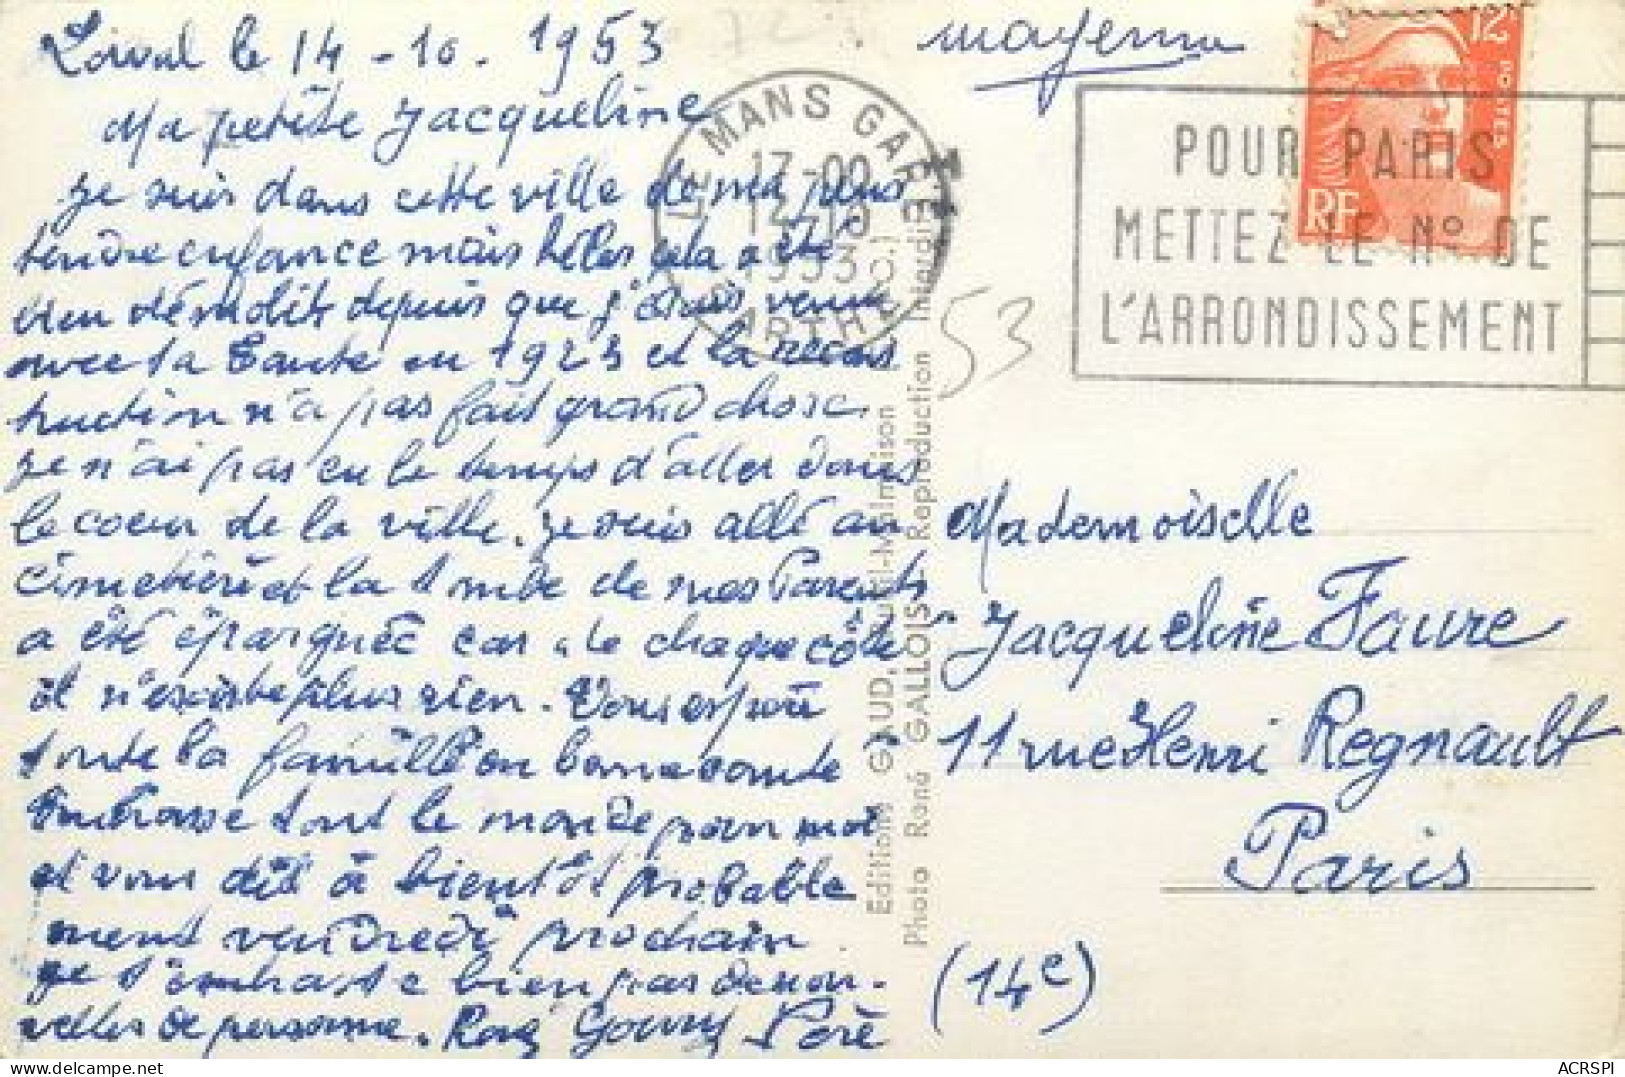 Laval le 14 - 10 - 1953
Ma petite Jacqueline
je suis dans cette ville de ma plus
tendre enfance mais hélas cela a été
bien démolit depuis que j'étais venu
avec ta tante en 1923 et la recons
truction n'a pas fait grand chose.
je n'ai pas eu le temps d'aller dans
le coeur de la ville. je suis allé au
cimetière et la tombe de mes Parents
a été épargnée car de chaque côté
il n'existe plus rien. Vous espère
toute la famille en bonne sante
Embrasse tout le monde pour moi
et vous dit à bientôt probable
ment vendredi prochain
je t'embrasse bien pas de nou-
velles de personne. Père
mayenne
53
72
LE MANS GARE
17-00
14-10
1953
SARTHE
POUR PARIS
METTEZ LE N° DE
L'ARRONDISSEMENT
12F
POSTES
RF
Editions GAUD, Rueil-Malmaison (S.-&-O.)
Photo René GALLOIS - Reproduction Interdite
Mademoiselle
Jacqueline Faure
11 rue Henri Regnault
Paris
(14e)
ACRSPI